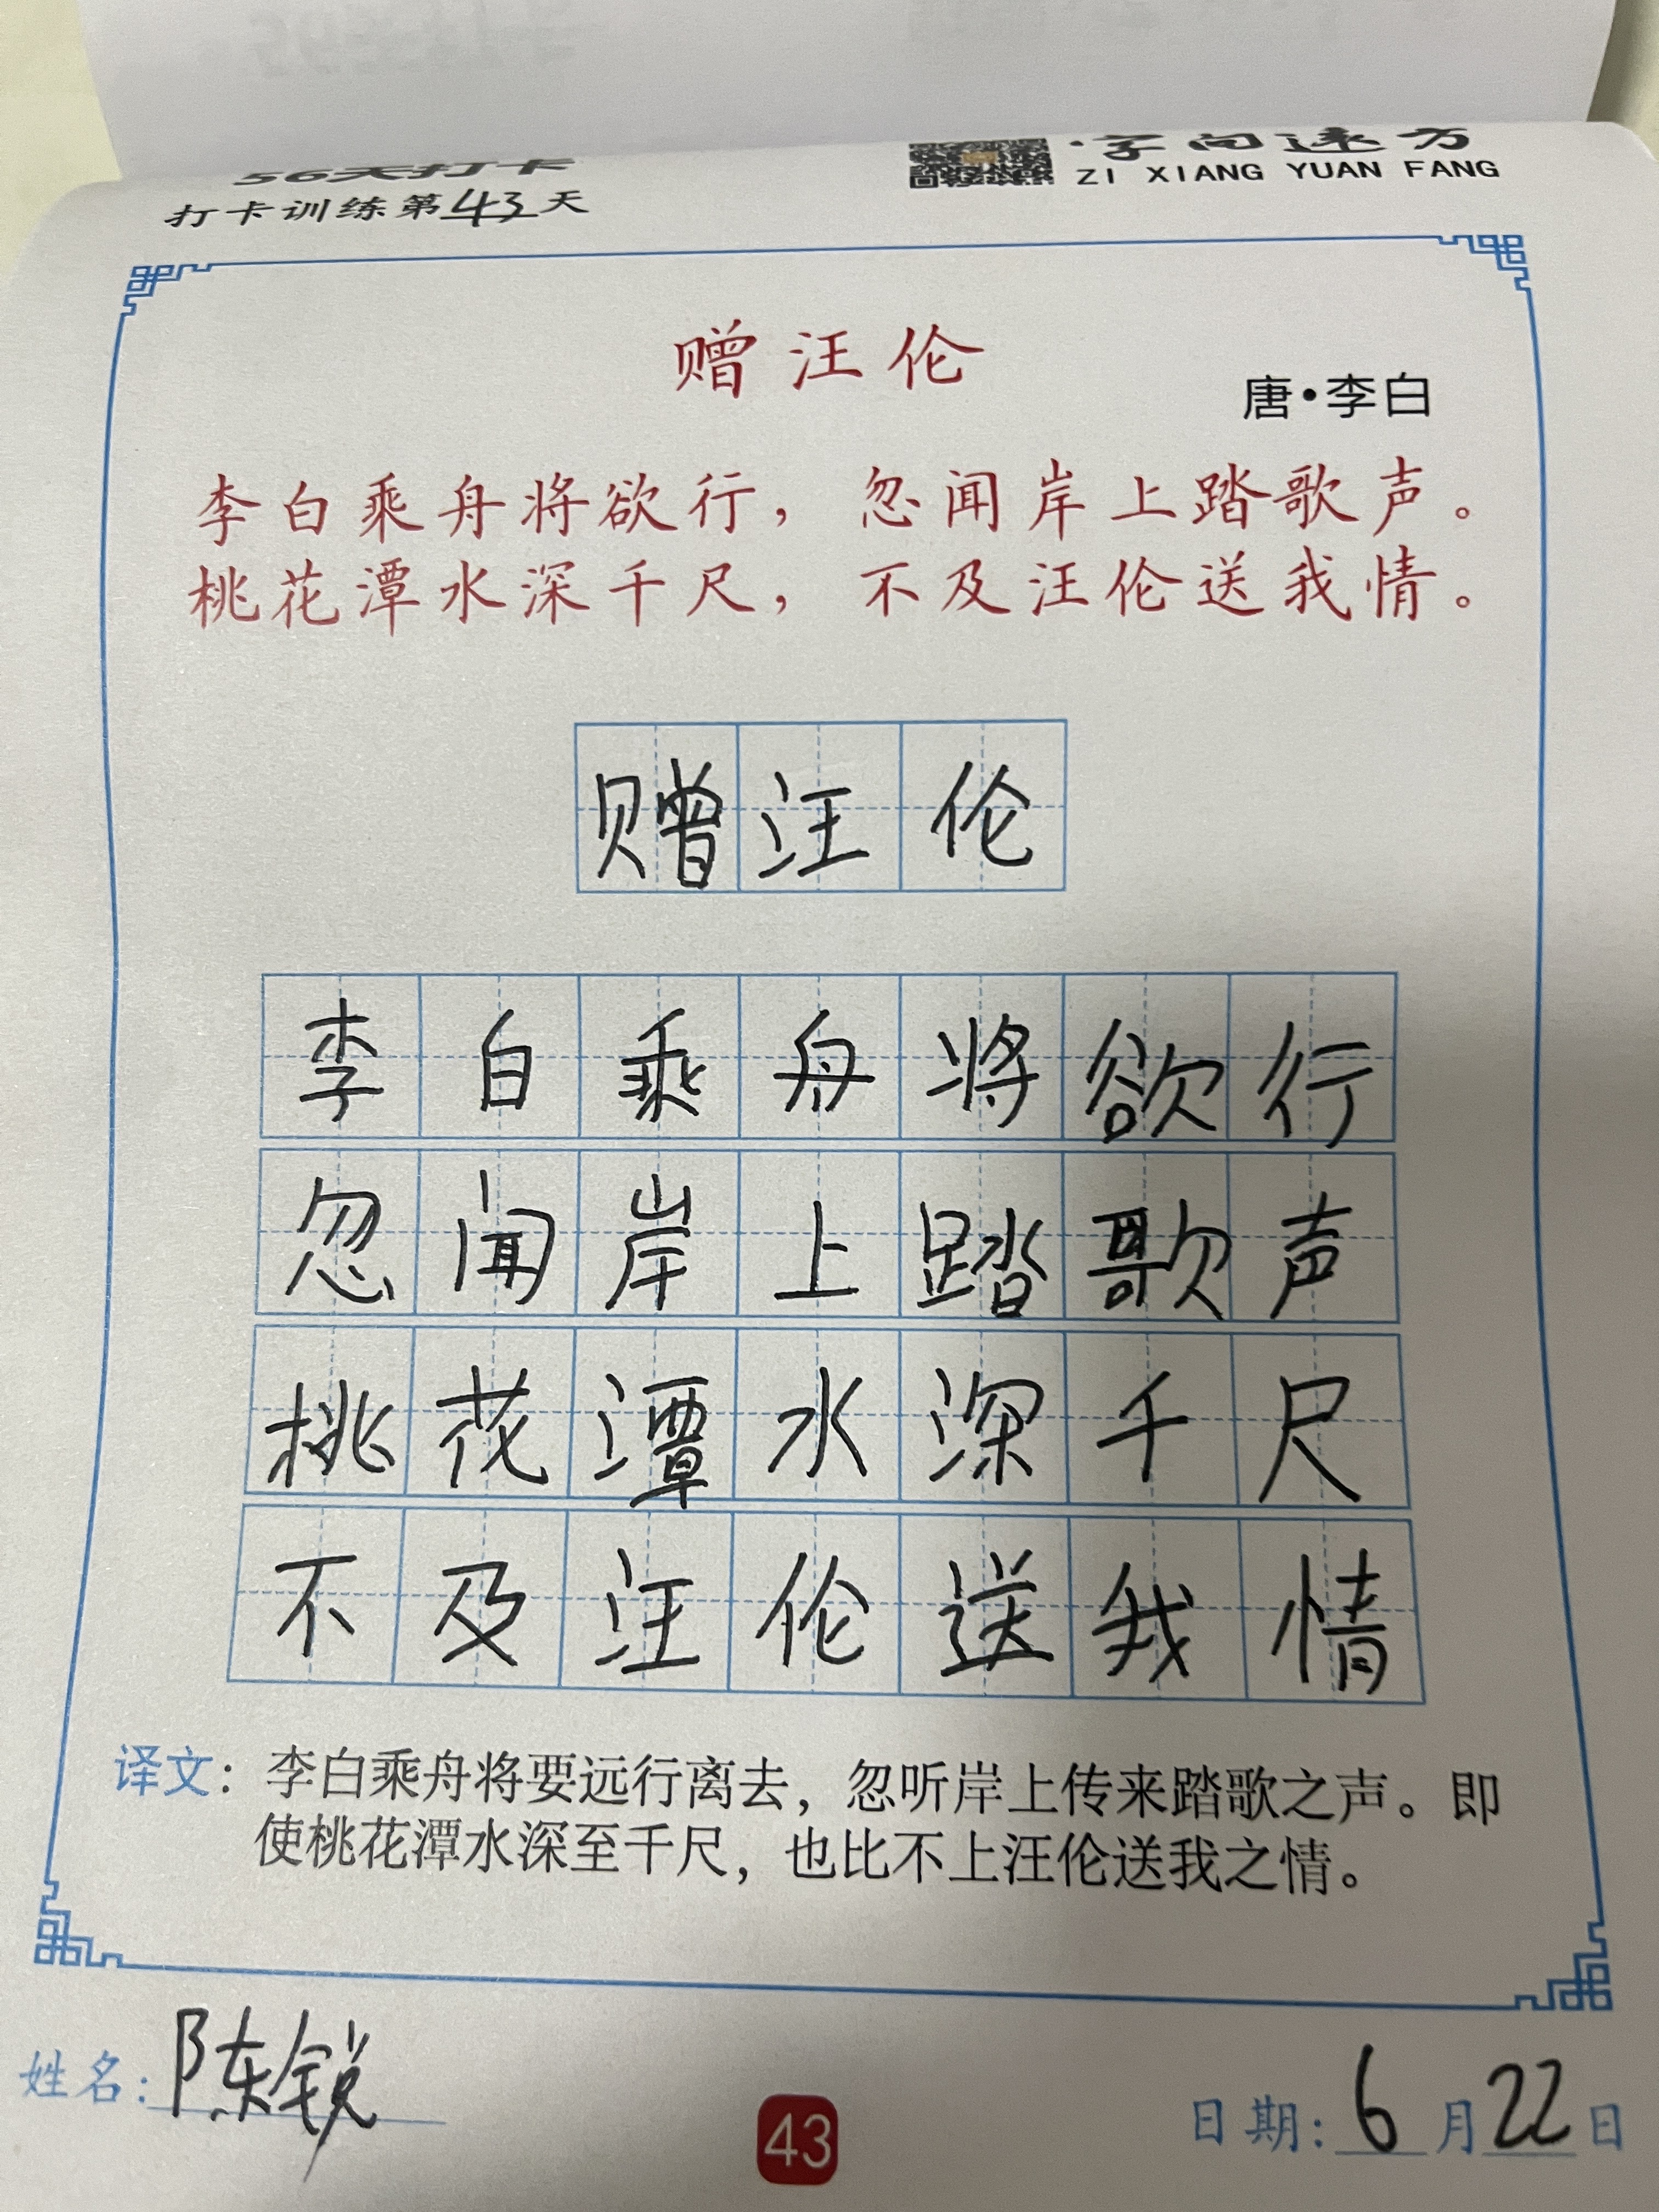 56天打卡
打卡训练第43天
·字向远方
ZI XIANG YUAN FANG
赠汪伦
唐·李白
李白乘舟将欲行，忽闻岸上踏歌声。
桃花潭水深千尺，不及汪伦送我情。
赠汪伦
李白乘舟将欲行
忽闻岸上踏歌声
桃花潭水深千尺
不及汪伦送我情
译文：李白乘舟将要远行离去，忽听岸上传来踏歌之声。即
使桃花潭水深至千尺，也比不上汪伦送我之情。
姓名：陈锐
43
日期：6月22日